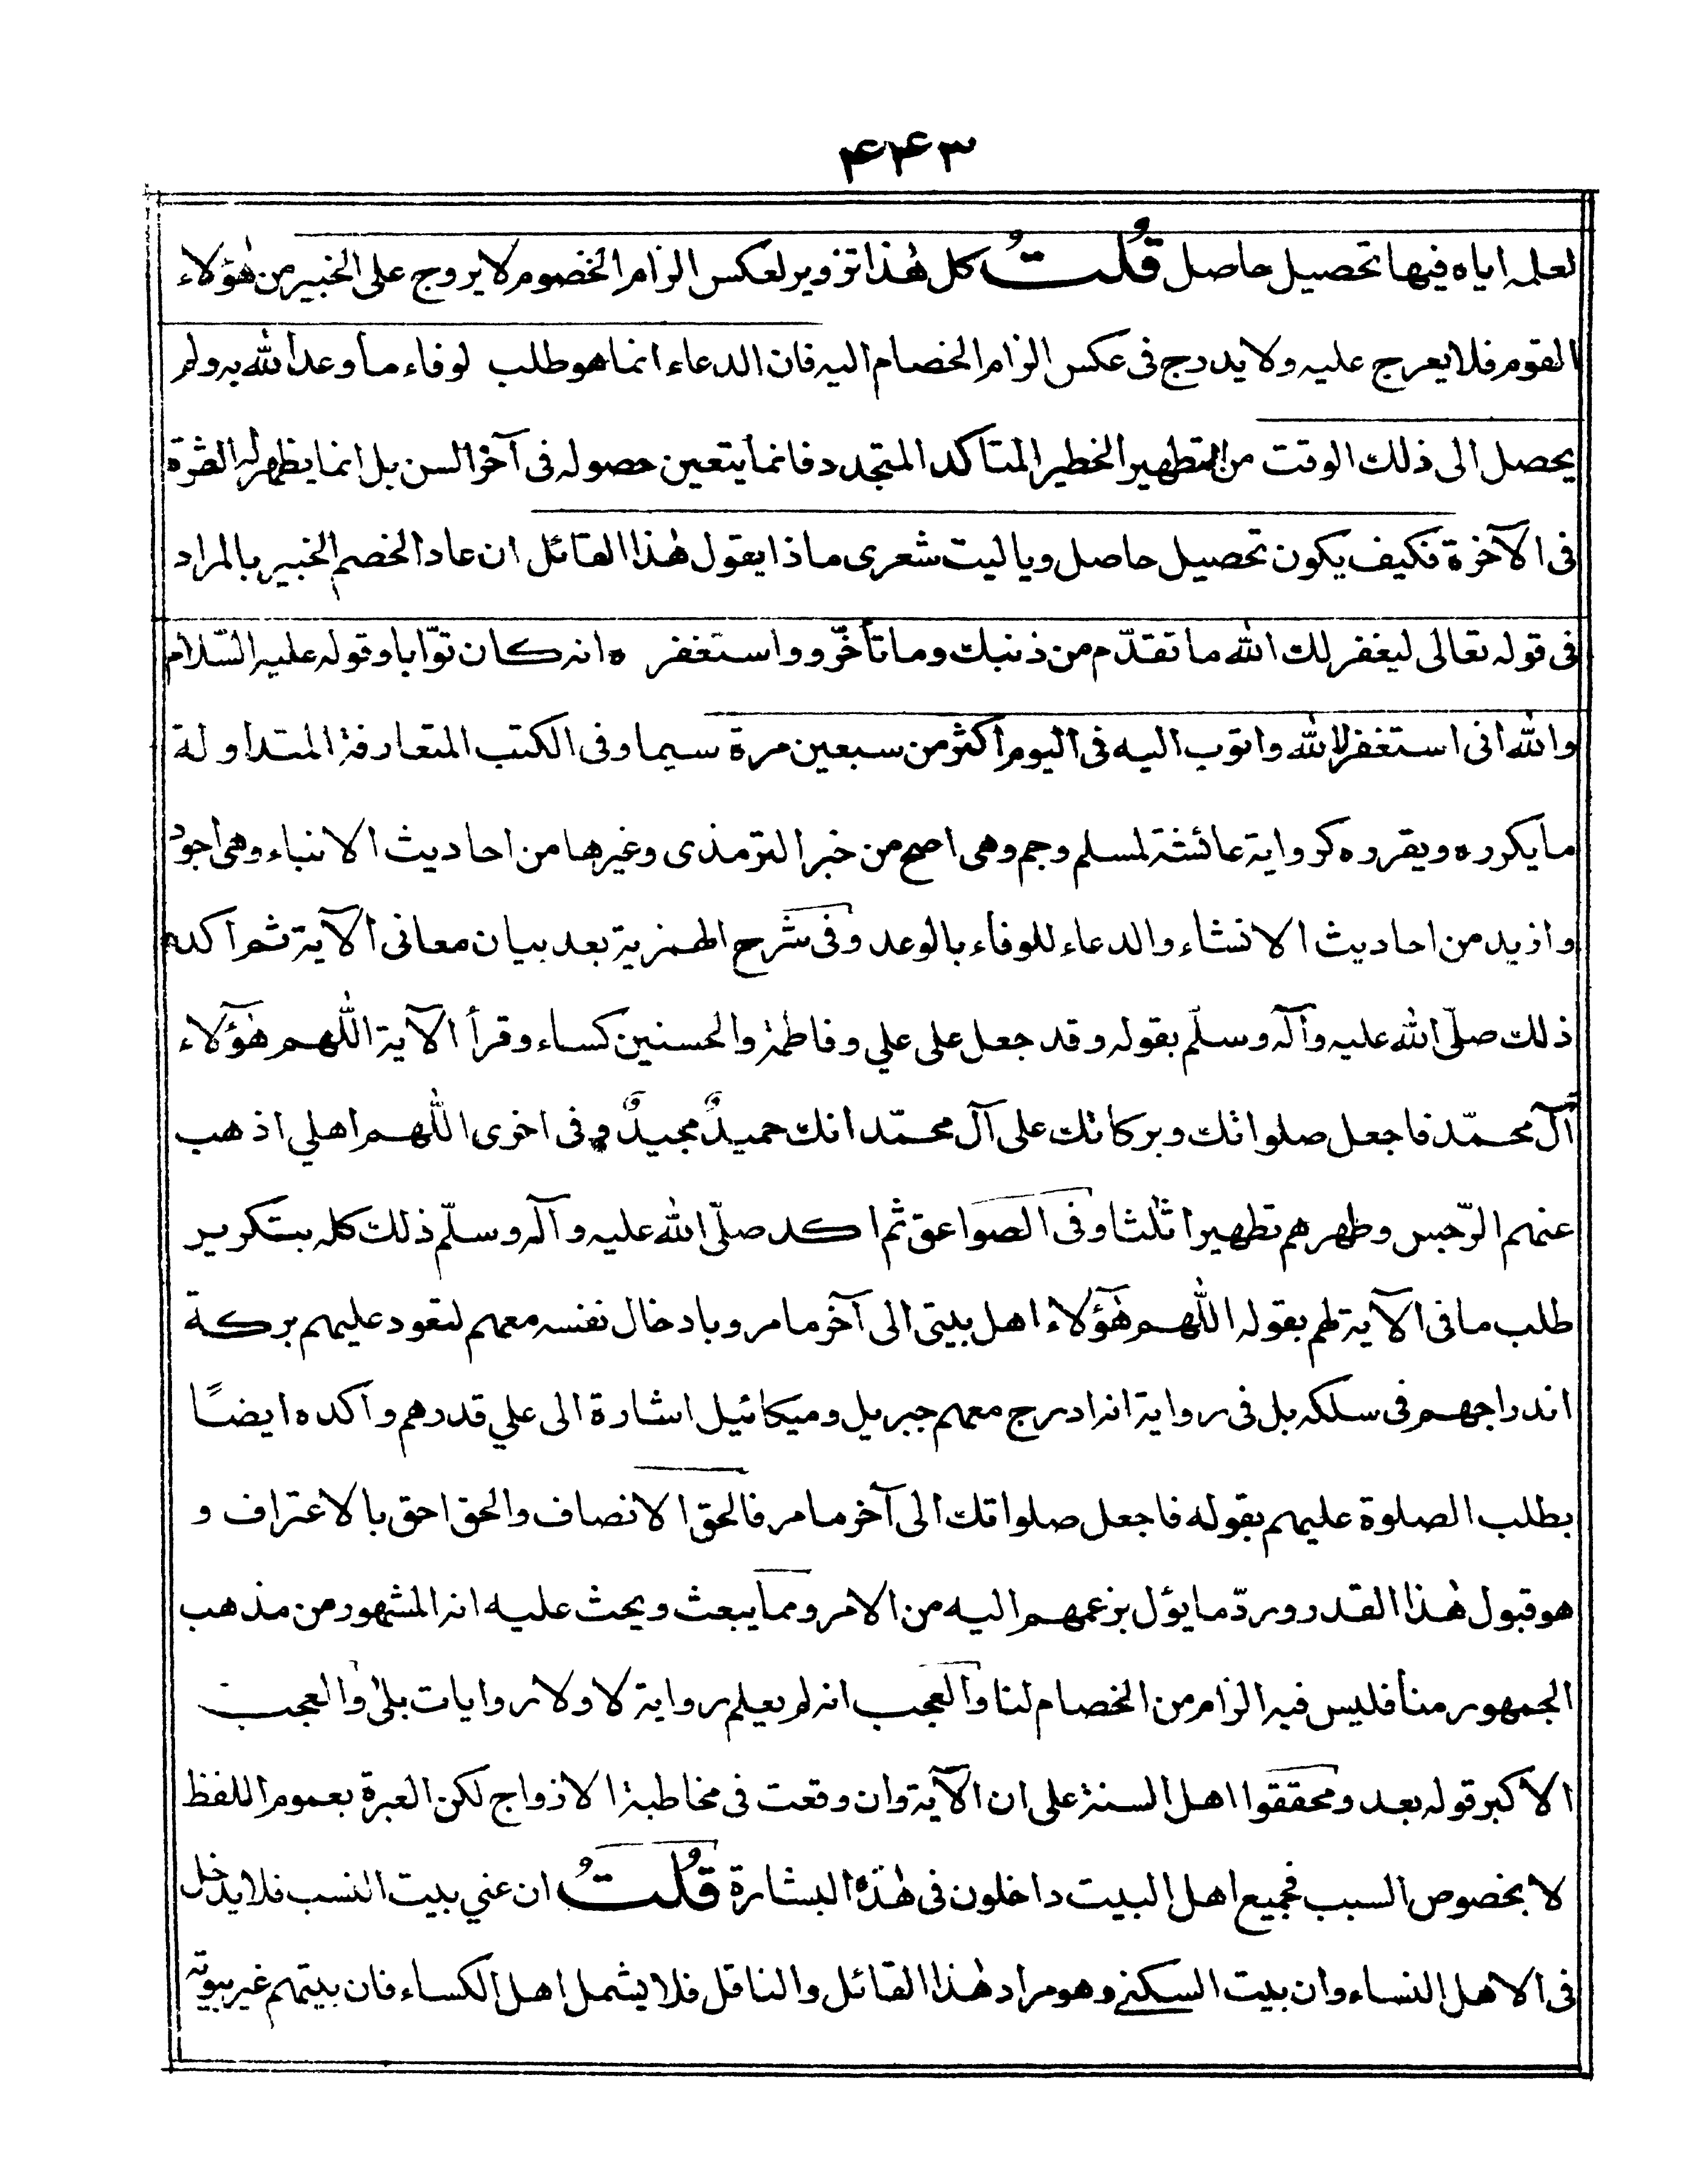 ۴۴۳
لعلمه اياه فيها تحصيل حاصل قُلتُ كل هٰذا تزوير لعكس الزام الخصوم لا يروج على الخبير من هٰؤلاء
القوم فلا يعرج عليه ولا يدرج فى عكس الزام الخصام اليه فان الدعاء انما هو طلب لوفاء ما وعد الله به ولم
يحصل الى ذلك الوقت من التطهير الخطير المتأكد المتجدد فانما يتعين حصوله فى آخر السن بل انما يظهر له الثمرة
فى الآخرة فكيف يكون تحصيل حاصل ويا ليت شعرى ماذا يقول هٰذا القائل ان عاد الخصم الخبير بالمراد
فى قوله تعالى ليغفر لك الله ما تقدّم من ذنبك وما تأخّر و واستغفر ه انه كان توّابا وقوله عليه السّلام
والله انى استغفر الله واتوب اليه فى اليوم اكثر من سبعين مرة سيما وفى الكتب المتعارفة المتداولة
ما يكرره ويقرره كرواية عائشة لمسلم وجم وهى اصح من خبر الترمذى وغيرها من احاديث الانباء وهى اجود
وازيد من احاديث الانشاء والدعاء للوفاء بالوعد وفى شرح الهمزية بعد بيان معانى الآية ثم اكده
ذلك صلّى الله عليه وآله وسلّم بقوله وقد جعل على علي وفاطمة والحسنين كساء وقرأ الآية اللّهم هٰؤلاء
آل محمّد فاجعل صلواتك وبركاتك على آل محمّد انك حميدٌ مجيدٌ وفى اخرى اللّهم اهلي اذهب
عنهم الرّجس وطهرهم تطهيرا ثلثا وفى الصواعق ثم اكد صلّى الله عليه وآله وسلّم ذلك كله بتكرير
طلب ما فى الآية لهم بقوله اللّهم هٰؤلاء اهل بيتى الى آخر ما مر وبادخال نفسه معهم لتعود عليهم بركة
اندراجهم فى سلكه بل فى رواية انه ادرج معهم جبريل وميكائيل اشارة الى علي قدرهم واكده ايضًا
بطلب الصلوة عليهم بقوله فاجعل صلواتك الى آخر ما مر فالحق الانصاف والحق احق بالاعتراف و
هو قبول هٰذا القدر وردّ ما يؤل بزعمهم اليه من الامر ومما يبعث ويحث عليه انه المشهور من مذهب
الجمهور منا فليس فيه الزام من الخصام لنا والعجب انه لم يعلم رواية لا ولا روايات بلى والعجب
الاكبر قوله بعد ومحققوا اهل السنة على ان الآية وان وقعت فى مخاطبة الازواج لكن العبرة بعموم اللفظ
لا بخصوص السبب فجميع اهل البيت داخلون فى هٰذه البشارة قُلتُ ان عني بيت النسب فلا يدخل
فى الاهل النساء وان بيت السكنے وهو مراد هٰذا القائل والناقل فلا يشمل اهل الكساء فان بيتهم غير بيوته